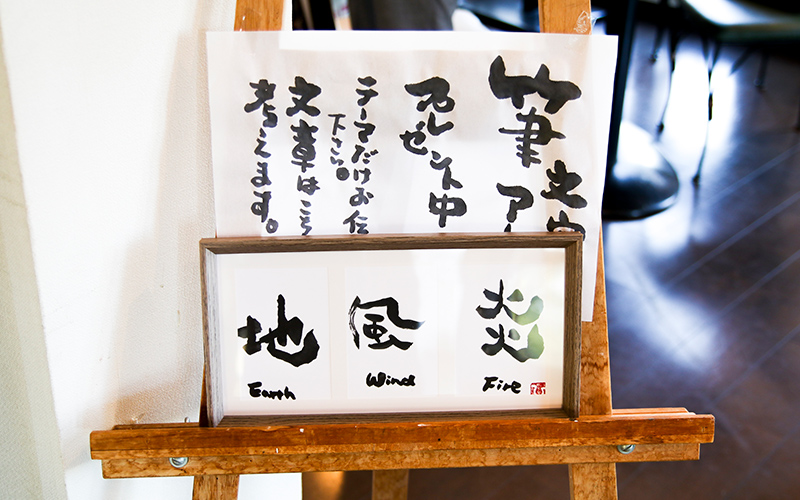 筆
文字
アー
プレゼント中
テーマだけお伝
下さい。
文章はこち
考えます。
炎
Fire
風
Wind
地
Earth